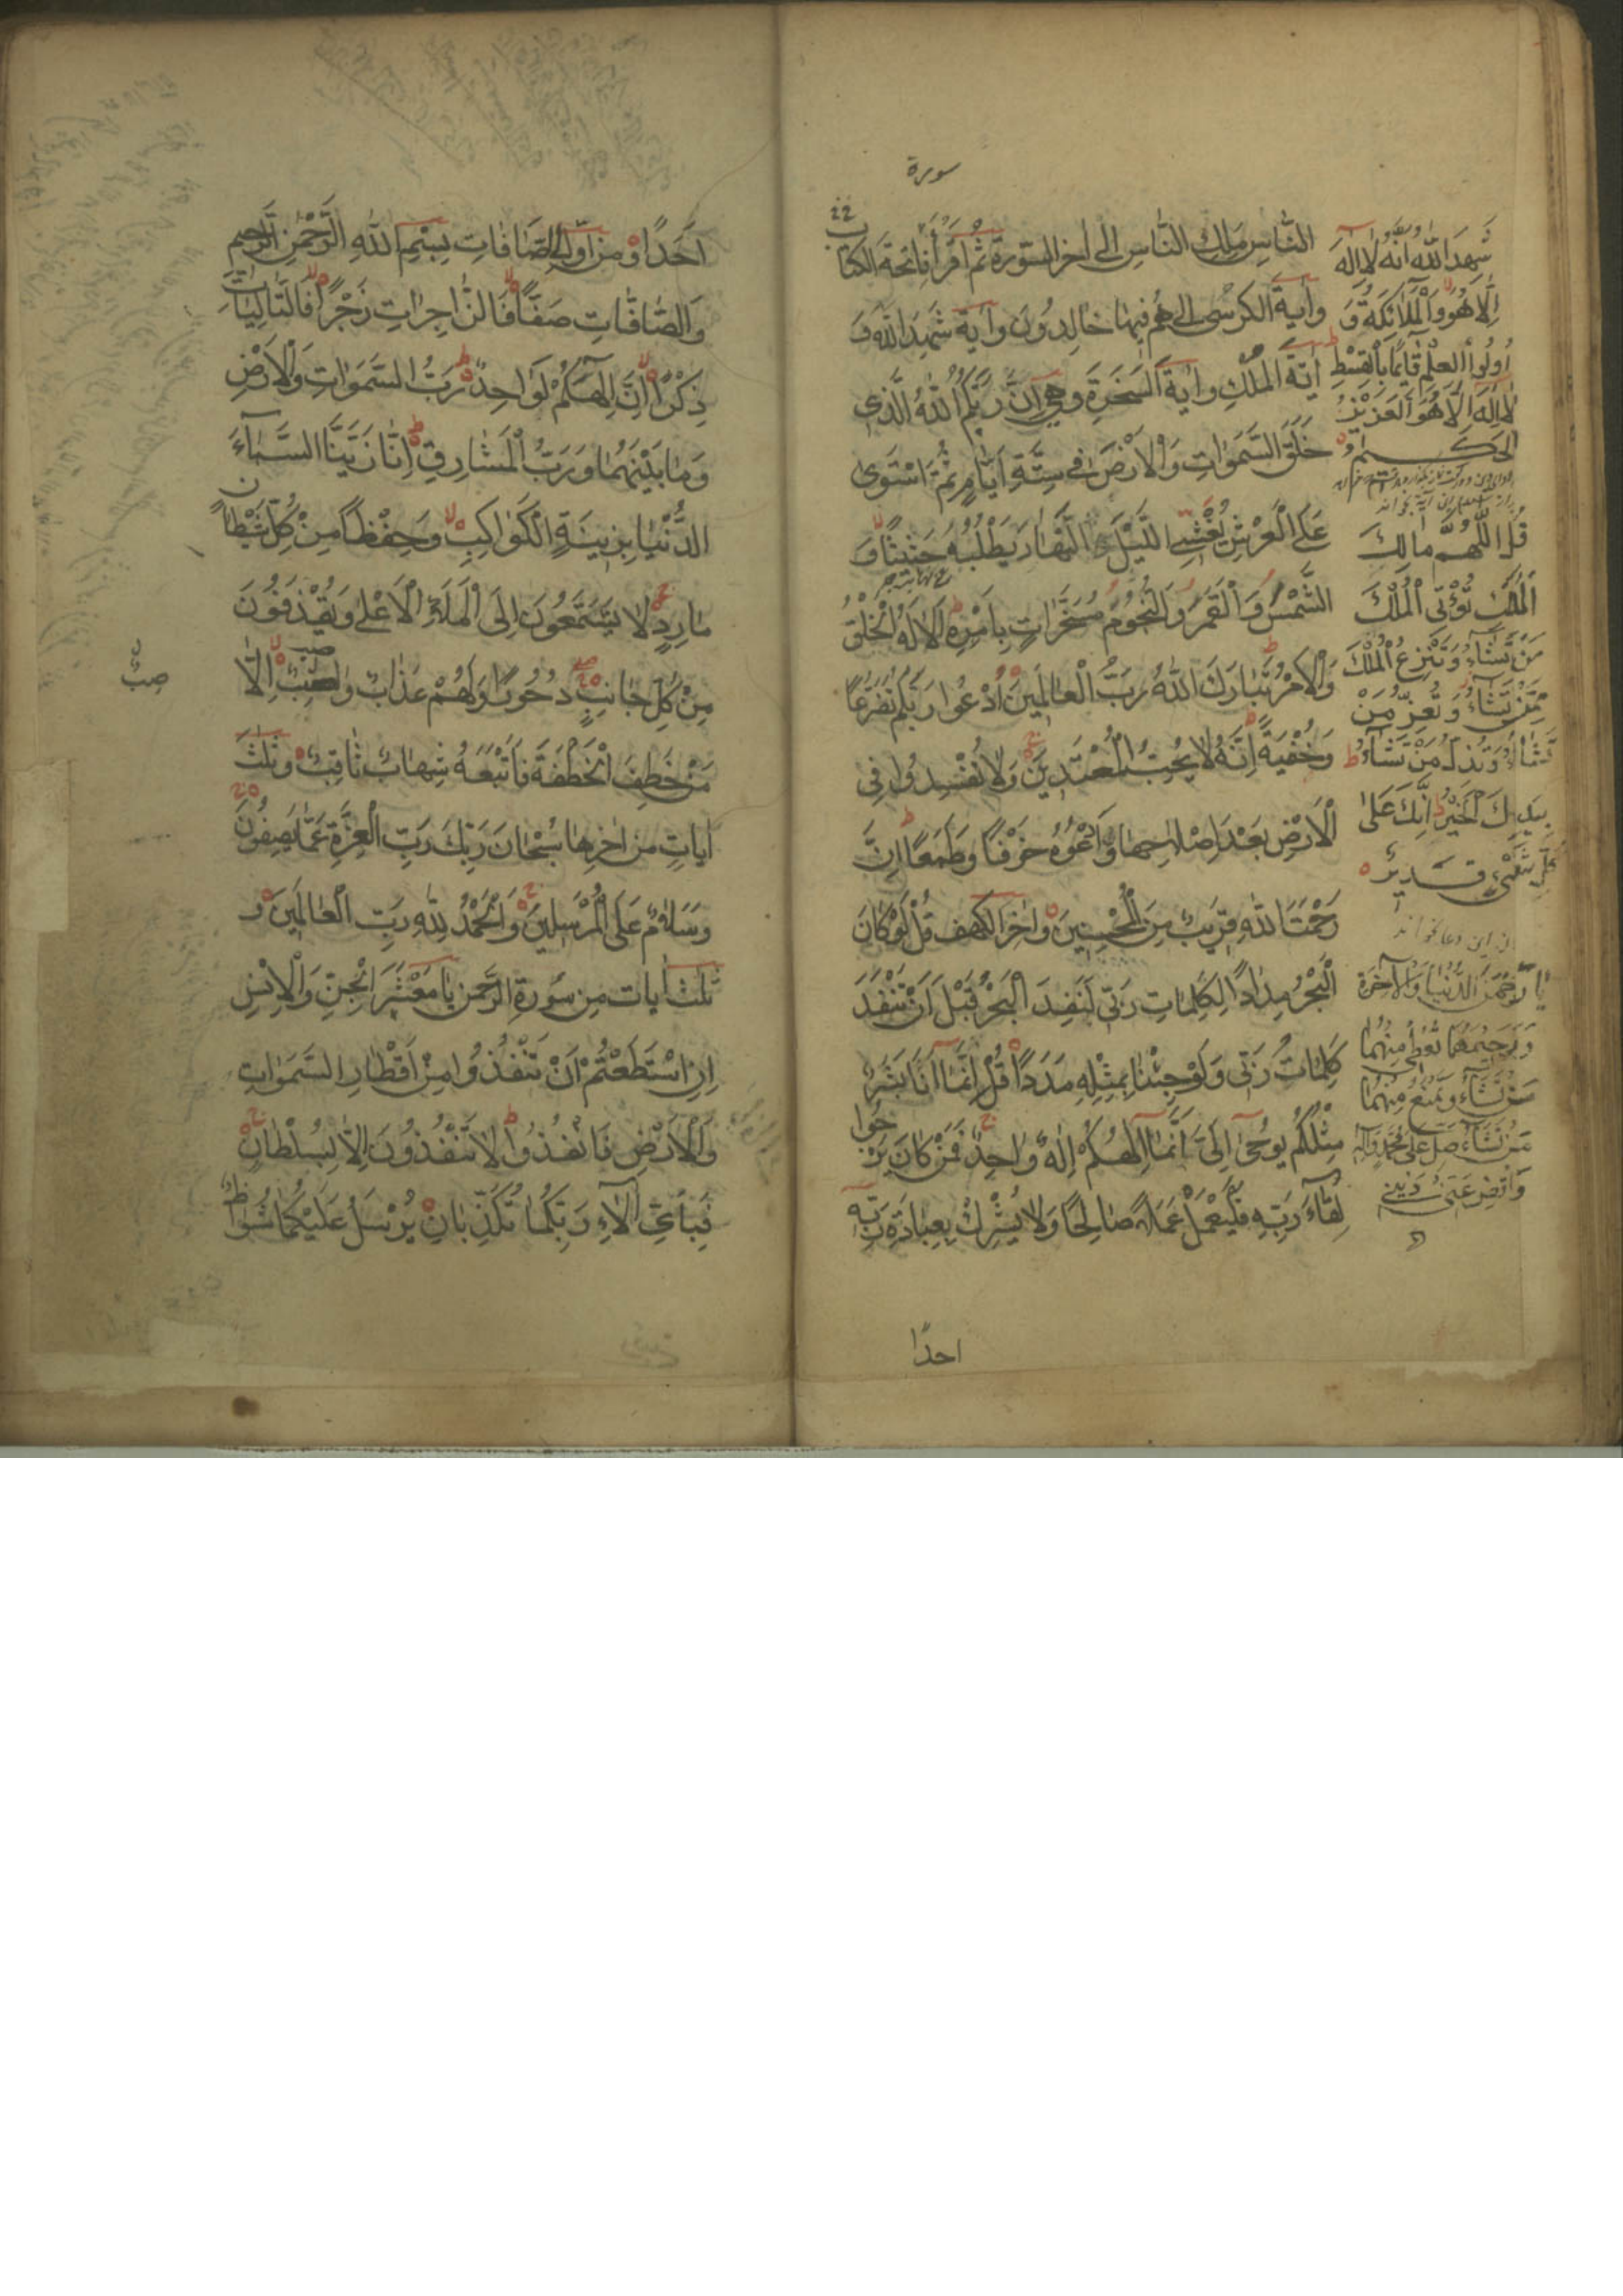 سورة
٢٢
الناسِ مَلِكِ النَّاسِ الى اخر السّورة ثُمَّ اقرَأ فاتحةَ الكتاب
وايةَ الكرسى الى هُمْ فيها خالِدُونَ وآيةَ شَهِدَ اللهُ وَ
ايَةَ المُلْكِ وايَةَ السَّخَرَةِ وهى اِنَّ رَبَّكُمُ اللهُ الَّذى
خَلَقَ السَّمَوٰاتِ وَالْاَرْضَ فى سِتَّةِ اَيّٰامٍ ثُمَّ اسْتَوى
عَلَى الْعَرْشِ يُغْشِى اللَّيْلَ النَّهٰارَ يَطْلُبُهُ حَثيثًا وَ
الشَّمْسَ وَالْقَمَرَ وَالنُّجُومَ مُسَخَّرٰاتٍ بِاَمْرِهِ اَلٰا لَهُ الْخَلْقُ
وَالْاَمْرُ تَبٰارَكَ اللهُ رَبُّ الْعٰالَمينَ اُدْعُوا رَبَّكُمْ تَضَرُّعًا
وَخُفْيَةً اِنَّهُ لٰا يُحِبُّ الْمُعْتَدينَ وَلٰا تُفْسِدُوا فِى
الْاَرْضِ بَعْدَ اِصْلٰاحِهٰا وَادْعُوهُ خَوْفًا وَطَمَعًا اِنَّ
رَحْمَتَ اللهِ قَريبٌ مِنَ الْمُحْسِنينَ واخر الكهف قُلْ لَوْ كٰانَ
الْبَحْرُ مِدٰادًا لِكَلِمٰاتِ رَبّى لَنَفِدَ الْبَحْرُ قَبْلَ اَنْ تَنْفَدَ
كَلِمٰاتُ رَبّى وَلَوْ جِئْنٰا بِمِثْلِهِ مَدَدًا قُلْ اِنَّمٰا اَنَا بَشَرٌ
مِثْلُكُمْ يُوحٰى اِلَىَّ اَنَّمٰا اِلٰهُكُمْ اِلٰهٌ وٰاحِدٌ فَمَنْ كٰانَ يَرْجُوا
لِقٰاءَ رَبِّهِ فَلْيَعْمَلْ عَمَلًا صٰالِحًا وَلٰا يُشْرِكْ بِعِبٰادَةِ رَبِّهِ
احدًا
شَهِدَ اللهُ اَنَّهُ لٰا اِلٰهَ
اِلّٰا هُوَ وَالْمَلٰائِكَةُ وَ
اُولُوا الْعِلْمِ قٰائِمًا بِالْقِسْطِ
لٰا اِلٰهَ اِلّٰا هُوَ الْعَزيزُ
الحَكيمُ
قُلِ اللّٰهُمَّ مٰالِكَ
الْمُلْكِ تُؤْتِى الْمُلْكَ
مَنْ تَشٰاءُ وَتَنْزِعُ الْمُلْكَ
مِمَّنْ تَشٰاءُ وَتُعِزُّ مَنْ
تَشٰاءُ وَتُذِلُّ مَنْ تَشٰاءُ
بِيَدِكَ الْخَيْرُ اِنَّكَ عَلىٰ
كُلِّ شَىْءٍ قَديرٌ
يٰا رَحْمٰنَ الدُّنْيٰا وَالْاٰخِرَةِ
وَرَحيمَهُمٰا تُعْطى مِنْهُمٰا
مَنْ تَشٰاءُ وَتَمْنَعُ مِنْهُمٰا
مَنْ تَشٰاءُ صَلِّ عَلىٰ مُحَمَّدٍ وَآلِهِ
وَاقْضِ عَنّى دَيْنى
اَحَدًا ومن اوّل الصّافّات بِسْمِ اللهِ الرَّحْمٰنِ الرَّحيمِ
وَالصّٰافّٰاتِ صَفًّا فَالزّٰاجِرٰاتِ زَجْرًا فَالتّٰالِيٰاتِ
ذِكْرًا اِنَّ اِلٰهَكُمْ لَوٰاحِدٌ رَبُّ السَّمَوٰاتِ وَالْاَرْضِ
وَمٰا بَيْنَهُمٰا وَرَبُّ الْمَشٰارِقِ اِنّٰا زَيَّنَّا السَّمٰاءَ
الدُّنْيٰا بِزينَةٍ الْكَوٰاكِبِ وَحِفْظًا مِنْ كُلِّ شَيْطٰانٍ
مٰارِدٍ لٰا يَسَّمَّعُونَ اِلَى الْمَلَاِ الْاَعْلىٰ وَيُقْذَفُونَ
مِنْ كُلِّ جٰانِبٍ دُحُورًا وَلَهُمْ عَذٰابٌ وٰاصِبٌ اِلّٰا
صبٌ
مَنْ خَطِفَ الْخَطْفَةَ فَاَتْبَعَهُ شِهٰابٌ ثٰاقِبٌ وثلٰث
اياتٍ من اخرها سُبْحٰانَ رَبِّكَ رَبِّ الْعِزَّةِ عَمّٰا يَصِفُونَ
وَسَلٰامٌ عَلَى الْمُرْسَلينَ وَالْحَمْدُ لِلّٰهِ رَبِّ الْعٰالَمينَ و
ثلث ايات من سورة الرّحمن يٰا مَعْشَرَ الْجِنِّ وَالْاِنْسِ
اِنِ اسْتَطَعْتُمْ اَنْ تَنْفُذُوا مِنْ اَقْطٰارِ السَّمَوٰاتِ
وَالْاَرْضِ فَانْفُذُوا لٰا تَنْفُذُونَ اِلّٰا بِسُلْطٰانٍ
فَبِاَىِّ اٰلٰاءِ رَبِّكُمٰا تُكَذِّبٰانِ يُرْسَلُ عَلَيْكُمٰا شُوٰاظٌ
صبٌ